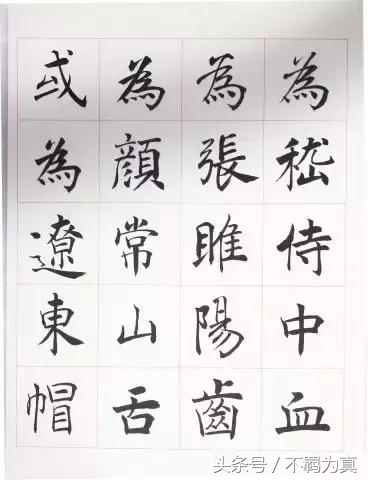 為嵇侍中血
為張睢陽齒
為顏常山舌
或為遼東帽
头条号 / 不羁为真